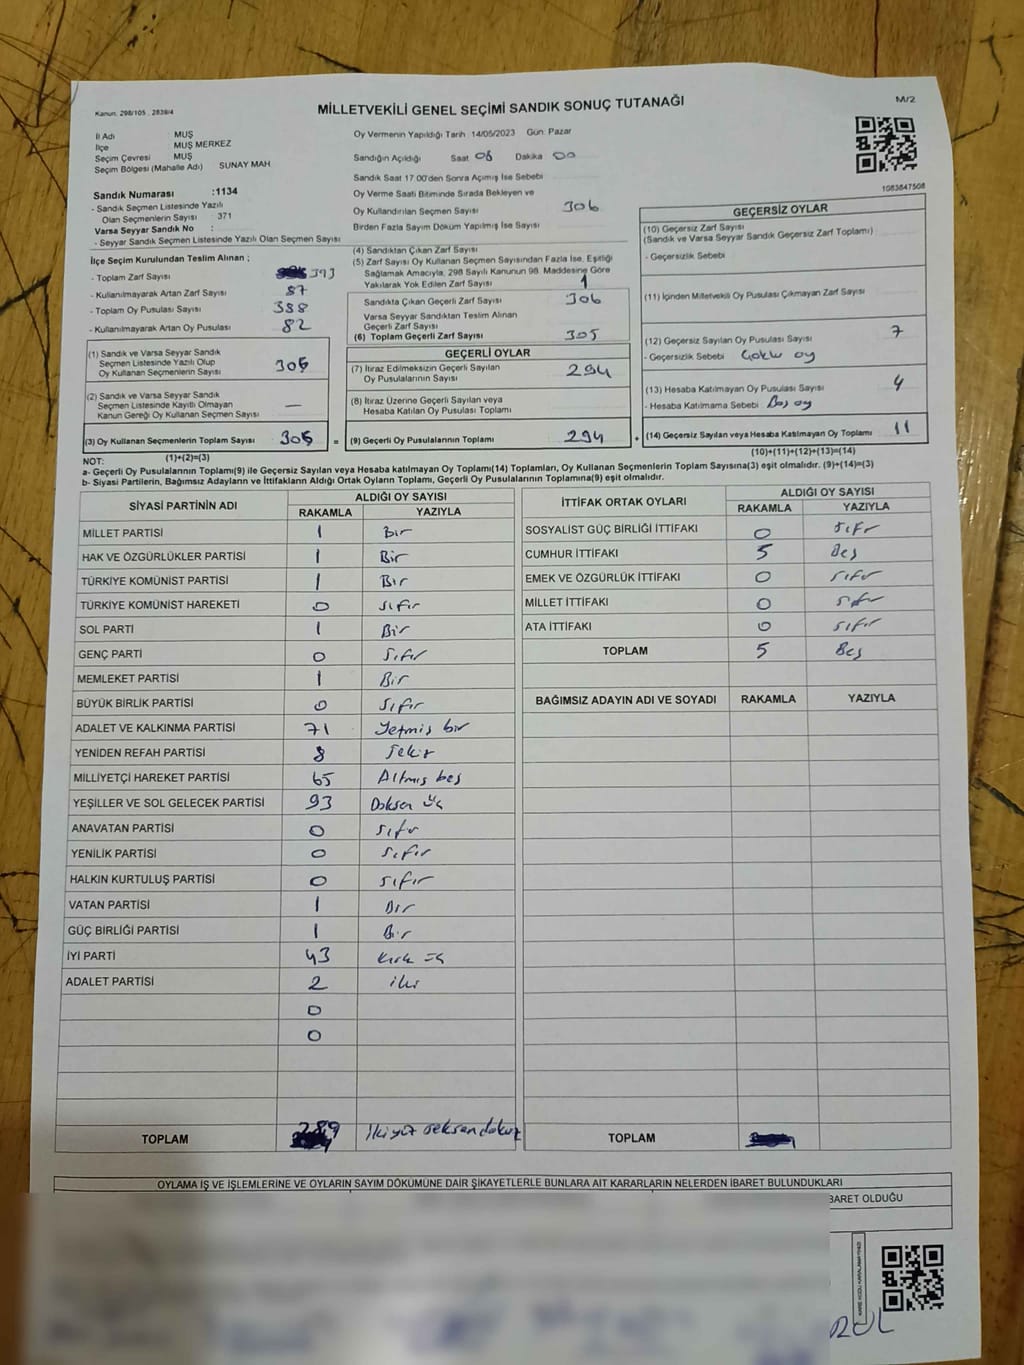 Kanun. 298/105 , 2839/4
MİLLETVEKİLİ GENEL SEÇİMİ SANDIK SONUÇ TUTANAĞI
M/2
İl Adı MUŞ
İlçe MUŞ MERKEZ
Seçim Çevresi MUŞ
Seçim Bölgesi (Mahalle Adı) SUNAY MAH
Sandık Numarası :1134
- Sandık Seçmen Listesinde Yazılı
Olan Seçmenlerin Sayısı : 371
Varsa Seyyar Sandık No :
- Seyyar Sandık Seçmen Listesinde Yazılı Olan Seçmen Sayısı
Oy Vermenin Yapıldığı Tarih 14/05/2023 Gün: Pazar
Sandığın Açıldığı Saat 08 Dakika 00
Sandık Saat 17.00'den Sonra Açımış İse Sebebi
Oy Verme Saati Bitiminde Sırada Bekleyen ve
Oy Kullandırılan Seçmen Sayısı 306
Birden Fazla Sayım Döküm Yapılmış İse Sayısı
1083847508
İlçe Seçim Kurulundan Teslim Alınan ;
- Toplam Zarf Sayısı 393
- Kullanılmayarak Artan Zarf Sayısı 87
- Toplam Oy Pusulası Sayısı 388
- Kullanılmayarak Artan Oy Pusulası 82
(1) Sandık ve Varsa Seyyar Sandık
Seçmen Listesinde Yazılı Olup
Oy Kullanan Seçmenlerin Sayısı 305
(2) Sandık ve Varsa Seyyar Sandık
Seçmen Listesinde Kayıtlı Olmayan
Kanun Gereği Oy Kullanan Seçmen Sayısı —
(3) Oy Kullanan Seçmenlerin Toplam Sayısı 305 =
(1)+(2)=(3)
(4) Sandıktan Çıkan Zarf Sayısı
(5) Zarf Sayısı Oy Kullanan Seçmen Sayısından Fazla İse, Eşitliği
Sağlamak Amacıyla, 298 Sayılı Kanunun 98. Maddesine Göre
Yakılarak Yok Edilen Zarf Sayısı 1
Sandıkta Çıkan Geçerli Zarf Sayısı 306
Varsa Seyyar Sandıktan Teslim Alınan
Geçerli Zarf Sayısı
(6) Toplam Geçerli Zarf Sayısı 305
GEÇERLİ OYLAR
(7) İtiraz Edilmeksizin Geçerli Sayılan
Oy Pusulalarının Sayısı 294
(8) İtiraz Üzerine Geçerli Sayılan veya
Hesaba Katılan Oy Pusulası Toplamı
(9) Geçerli Oy Pusulalarının Toplamı 294 +
GEÇERSİZ OYLAR
(10) Geçersiz Zarf Sayısı
(Sandık ve Varsa Seyyar Sandık Geçersiz Zarf Toplamı)
- Geçersizlik Sebebi
(11) İçinden Milletvekili Oy Pusulası Çıkmayan Zarf Sayısı
(12) Geçersiz Sayılan Oy Pusulası Sayısı 7
- Geçersizlik Sebebi Çoklu oy
(13) Hesaba Katılmayan Oy Pusulası Sayısı 4
- Hesaba Katılmama Sebebi Boş oy
(14) Geçersiz Sayılan veya Hesaba Katılmayan Oy Toplamı 11
(10)+(11)+(12)+(13)=(14)
NOT:
a- Geçerli Oy Pusulalarının Toplamı(9) ile Geçersiz Sayılan veya Hesaba katılmayan Oy Toplamı(14) Toplamları, Oy Kullanan Seçmenlerin Toplam Sayısına(3) eşit olmalıdır. (9)+(14)=(3)
b- Siyasi Partilerin, Bağımsız Adayların ve İttifakların Aldığı Ortak Oyların Toplamı, Geçerli Oy Pusulalarının Toplamına(9) eşit olmalıdır.
SİYASİ PARTİNİN ADI ALDIĞI OY SAYISI
RAKAMLA YAZIYLA
MİLLET PARTİSİ 1 Bir
HAK VE ÖZGÜRLÜKLER PARTİSİ 1 Bir
TÜRKİYE KOMÜNİST PARTİSİ 1 Bir
TÜRKİYE KOMÜNİST HAREKETİ 0 sıfır
SOL PARTİ 1 Bir
GENÇ PARTİ 0 sıfır
MEMLEKET PARTİSİ 1 Bir
BÜYÜK BİRLİK PARTİSİ 0 sıfır
ADALET VE KALKINMA PARTİSİ 71 Yetmiş bir
YENİDEN REFAH PARTİSİ 8 sekiz
MİLLİYETÇİ HAREKET PARTİSİ 65 Altmış beş
YEŞİLLER VE SOL GELECEK PARTİSİ 93 Doksan üç
ANAVATAN PARTİSİ 0 sıfır
YENİLİK PARTİSİ 0 sıfır
HALKIN KURTULUŞ PARTİSİ 0 sıfır
VATAN PARTİSİ 1 Bir
GÜÇ BİRLİĞİ PARTİSİ 1 Bir
İYİ PARTİ 43 Kırk üç
ADALET PARTİSİ 2 iki
0
0
TOPLAM 289 ikiyüz seksendokuz
İTTİFAK ORTAK OYLARI ALDIĞI OY SAYISI
RAKAMLA YAZIYLA
SOSYALİST GÜÇ BİRLİĞİ İTTİFAKI 0 sıfır
CUMHUR İTTİFAKI 5 Beş
EMEK VE ÖZGÜRLÜK İTTİFAKI 0 sıfır
MİLLET İTTİFAKI 0 sıfır
ATA İTTİFAKI 0 sıfır
TOPLAM 5 Beş
BAĞIMSIZ ADAYIN ADI VE SOYADI RAKAMLA YAZIYLA
TOPLAM
OYLAMA İŞ VE İŞLEMLERİNE VE OYLARIN SAYIM DÖKÜMÜNE DAİR ŞİKAYETLERLE BUNLARA AİT KARARLARIN NELERDEN İBARET BULUNDUKLARI
BARET OLDUĞU
KARE KODU KARALAMAYINIZ!